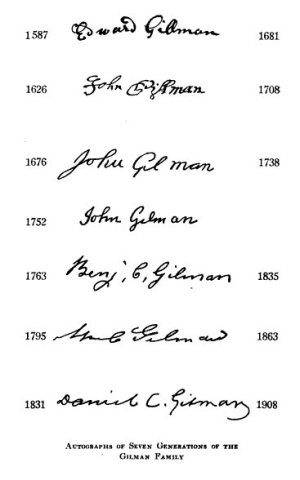 1587 Edward Gilman 1681
1626 John Gilman 1708
1676 John Gilman 1738
1752 John Gilman
1763 Benj. C. Gilman 1835
1795 Wm C Gilman 1863
1831 Daniel C. Gilman 1908
Autographs of Seven Generations of the
Gilman Family